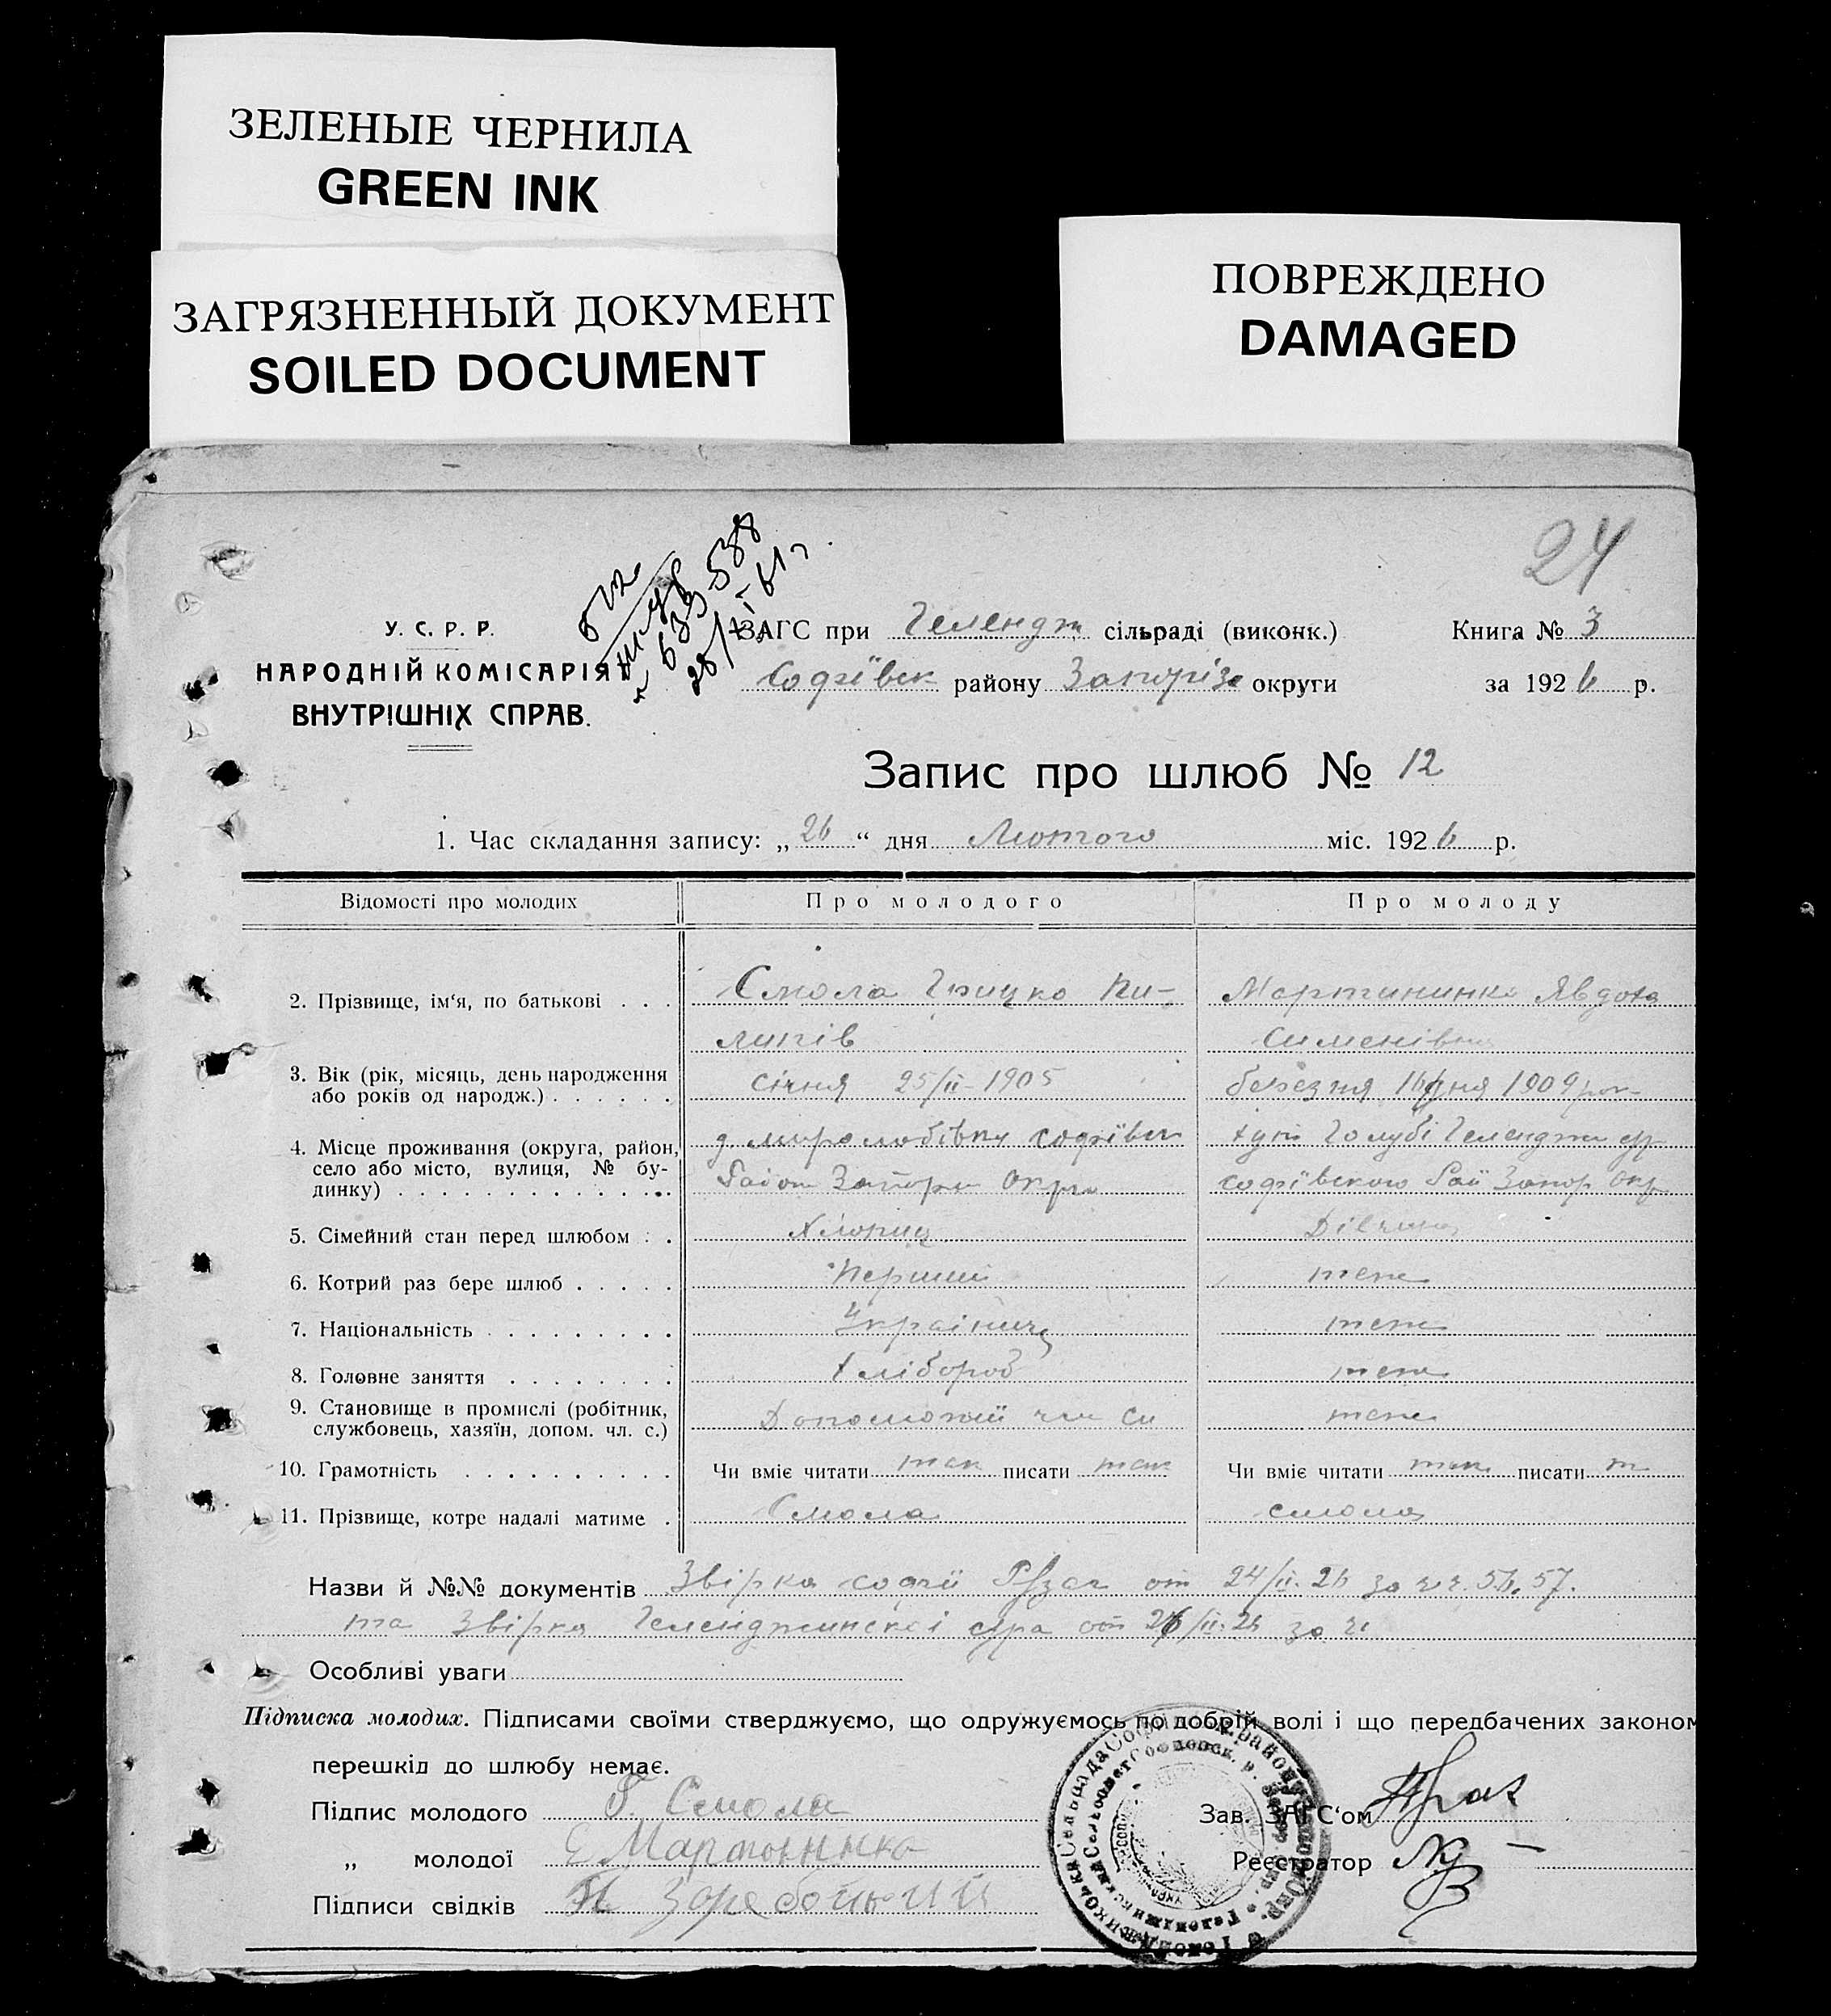 ЗЕЛЕНЫЕ ЧЕРНИЛА
GREEN INK
ЗАГРЯЗНЕННЫЙ ДОКУМЕНТ
SOILED DOCUMENT
ПОВРЕЖДЕНО
DAMAGED
24
У. С. Р. Р.
НАРОДНІЙ КОМІСАРІЯТ
ВНУТРІШНІХ СПРАВ.
ЗАГС при Гелендж сільраді (виконк.)
Софіївськ району Запоріз округи
Книга № 3
за 1926 р.
Запис про шлюб № 12
1. Час складання запису: „26“ дня Лютого міс. 1926 р.
Відомості про молодих Про молодого Про молоду
2. Прізвище, ім‘я, по батькові . . . Смола Грицко Пи- Мартининко Явдоха
липів Сименівна
3. Вік (рік, місяць, день народження Січня 25/II-1905 березня 16 дня 1909 рок
або років од народж.) . . . . . .
4. Місце проживання (округа, район, д. миролюбівка софіївськ хут Голубі Геленджи
село або місто, вулиця, № бу- Район Запорі Окру софіївського Рай Запор Окр
динку) . . . . . . . . . . . . . .
5. Сімейний стан перед шлюбом . . Хлопиц Дівчина
6. Котрий раз бере шлюб . . . . . Перший теж
7. Національність . . . . . . . . . Українець теж
8. Головне заняття . . . . . . . . Хлібороб теж
9. Становище в промислі (робітник, Допоможній член си теж
службовець, хазяїн, допом. чл. с.)
10. Грамотність . . . . . . . . . . Чи вміє читати так писати так Чи вміє читати так писати т
11. Прізвище, котре надалі матиме . Смола смола
Назви й №№ документів Звірка софії от 24/II-26 за 56. 57.
та Звірка Геленджинскоі от 26/II-26 за
Особливі уваги
Підписка молодих. Підписами своїми стверджуємо, що одружуємось по добрій волі і що передбачених законом
перешкід до шлюбу немає.
Підпис молодого Г. Смола
„ молодої Є Мартыннко
Підписи свідків
Зав. ЗАГС‘ом
Реєстратор